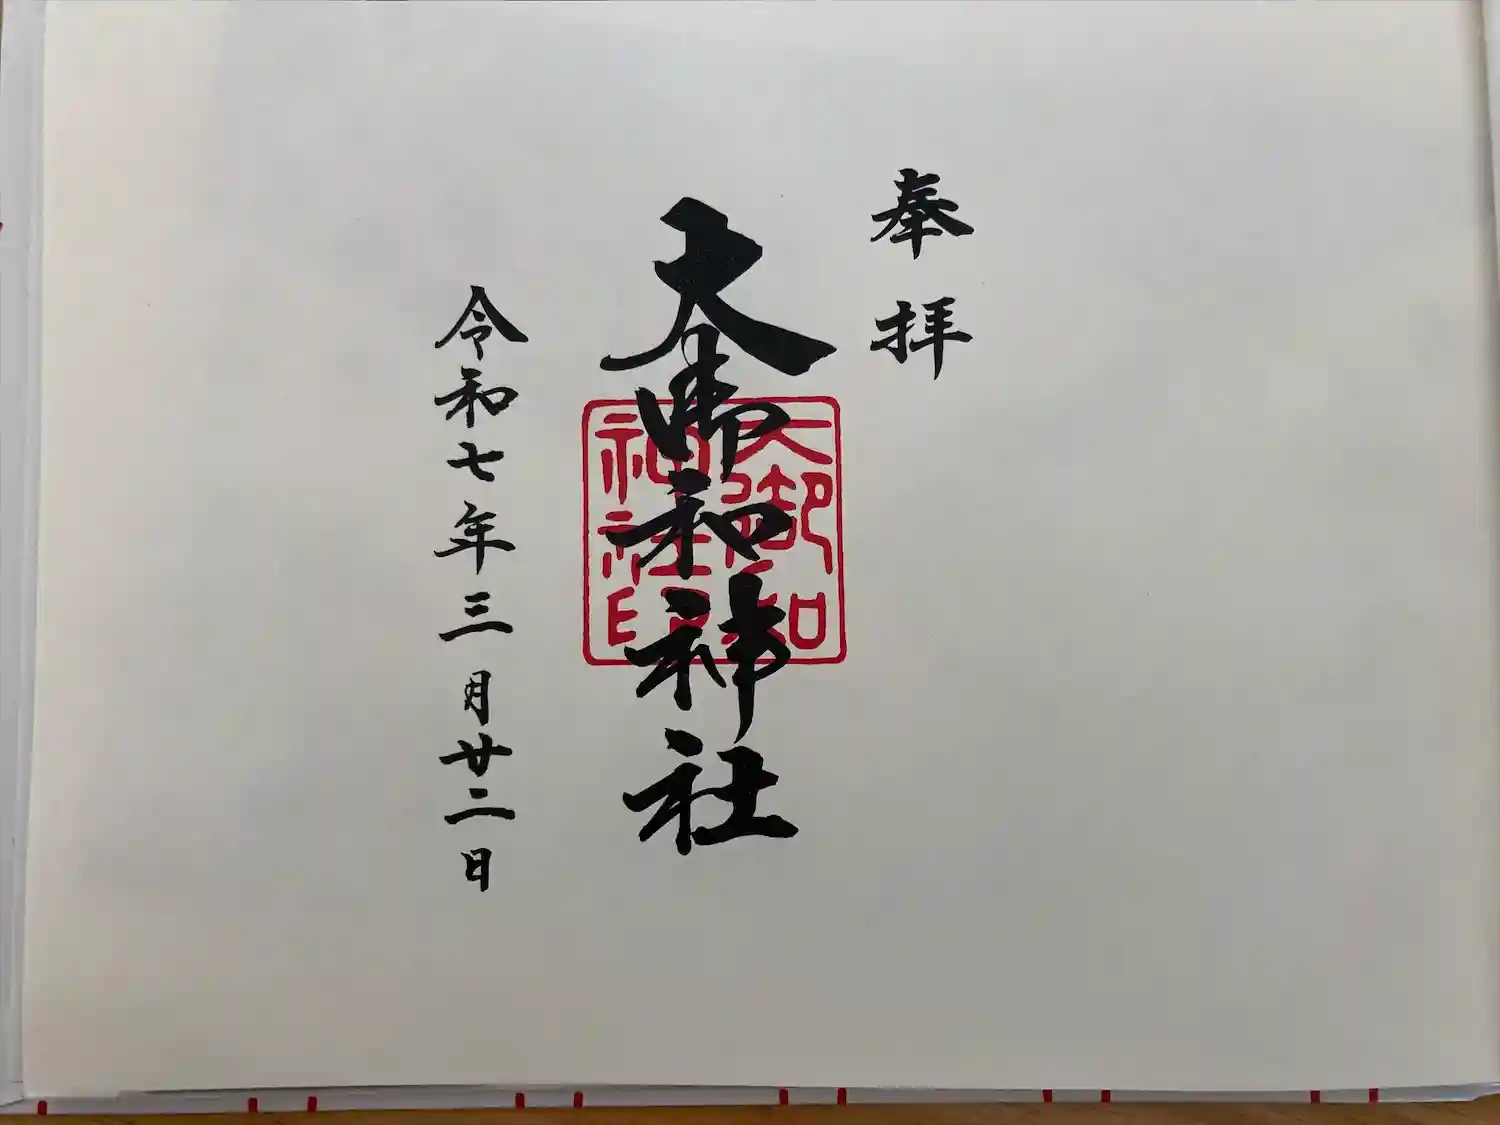 奉拝
大御和神社
大御和
神社印
令和七年三月廿二日